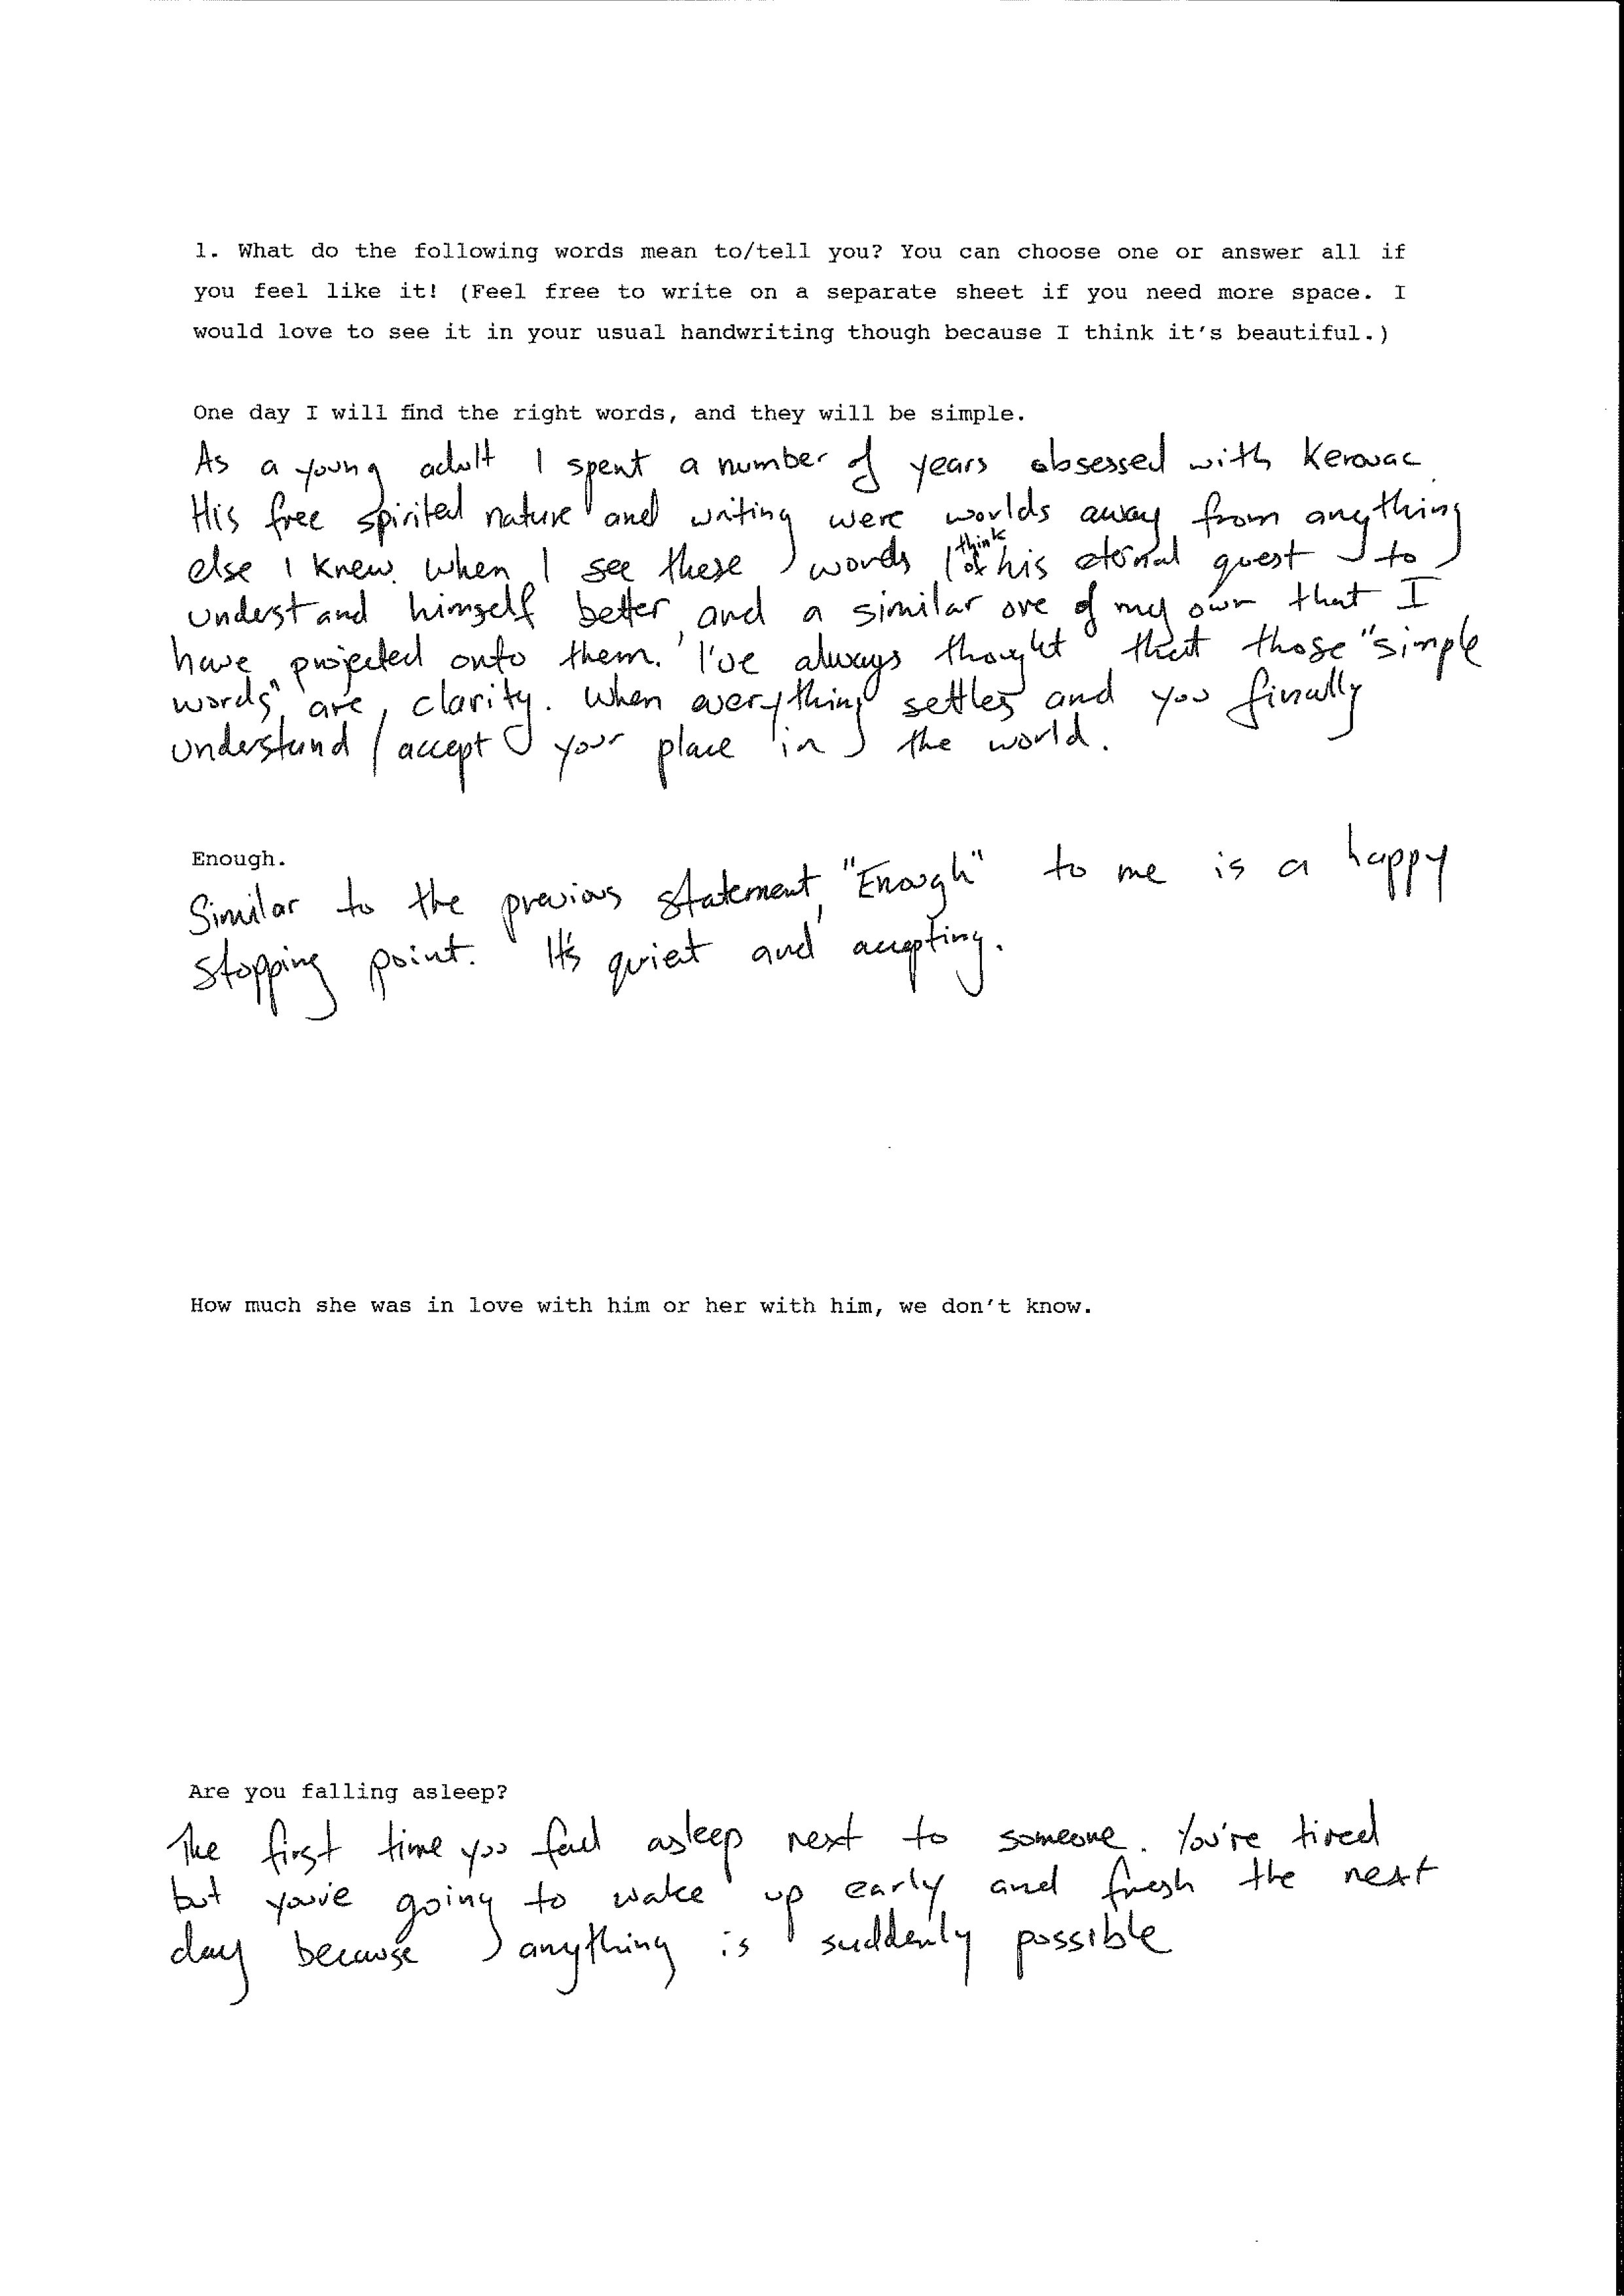 1. What do the following words mean to/tell you? You can choose one or answer all if
you feel like it! (Feel free to write on a separate sheet if you need more space. I
would love to see it in your usual handwriting though because I think it's beautiful.)
One day I will find the right words, and they will be simple.
As a young adult I spent a number of years obsessed with Kerouac
His free spirited nature and writing were worlds away from anything
else I knew. When I see these words I think of his eternal quest to
understand himself better, and a similar one of my own that I
have projected onto them. I've always thought that those "simple
words" are, clarity. When everything settles and you finally
understand / accept your place in the world.
Enough.
Similar to the previous statement, "Enough" to me is a happy
stopping point. It's quiet and accepting.
How much she was in love with him or her with him, we don't know.
Are you falling asleep?
The first time you fall asleep next to someone. You're tired
but you're going to wake up early and fresh the next
day because anything is suddenly possible